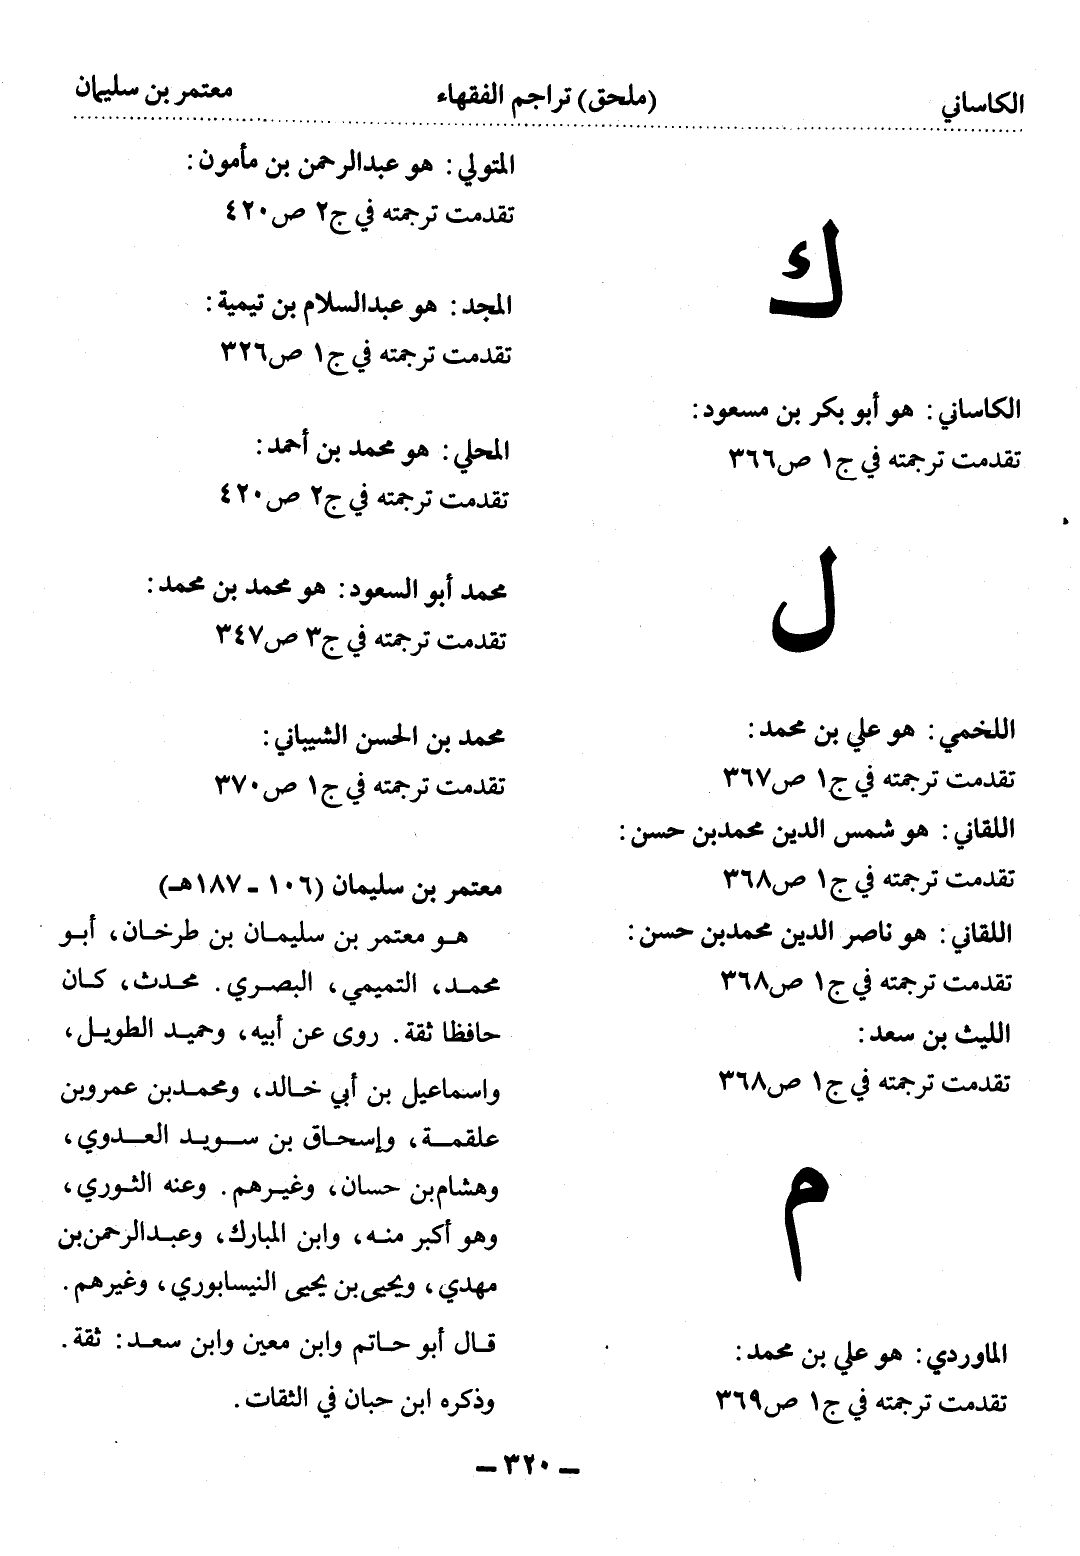 الكاساني
(ملحق) تراجم الفقهاء
معتمر بن سليمان
ك
الكاساني: هو أبو بكر بن مسعود:
تقدمت ترجمته في ج١ ص٣٦٦
ل
اللخمي: هو علي بن محمد:
تقدمت ترجمته في ج١ ص٣٦٧
اللقاني: هو شمس الدين محمدبن حسن:
تقدمت ترجمته في ج١ ص٣٦٨
اللقاني: هو ناصر الدين محمدبن حسن:
تقدمت ترجمته في ج١ ص٣٦٨
الليث بن سعد:
تقدمت ترجمته في ج١ ص٣٦٨
م
الماوردي: هو علي بن محمد:
تقدمت ترجمته في ج١ ص٣٦٩
المتولي: هو عبدالرحمن بن مأمون:
تقدمت ترجمته في ج٢ ص٤٢٠
المجد: هو عبدالسلام بن تيمية:
تقدمت ترجمته في ج١ ص٣٢٦
المحلي: هو محمد بن أحمد:
تقدمت ترجمته في ج٢ ص٤٢٠
محمد أبو السعود: هو محمد بن محمد:
تقدمت ترجمته في ج٣ ص٣٤٧
محمد بن الحسن الشيباني:
تقدمت ترجمته في ج١ ص٣٧٠
معتمر بن سليمان (١٠٦ - ١٨٧هـ)
هو معتمر بن سليمان بن طرخان، أبو
محمد، التميمي، البصري. محدث، كان
حافظا ثقة. روى عن أبيه، وحميد الطويل،
واسماعيل بن أبي خالد، ومحمدبن عمروبن
علقمة، وإسحاق بن سويد العدوي،
وهشام‌بن حسان، وغيرهم. وعنه الثوري،
وهو أكبر منه، وابن المبارك، وعبدالرحمن‌بن
مهدي، ويحيى‌بن يحيى النيسابوري، وغيرهم.
قال أبو حاتم وابن معين وابن سعد: ثقة.
وذكره ابن حبان في الثقات.
- ٣٢٠ -